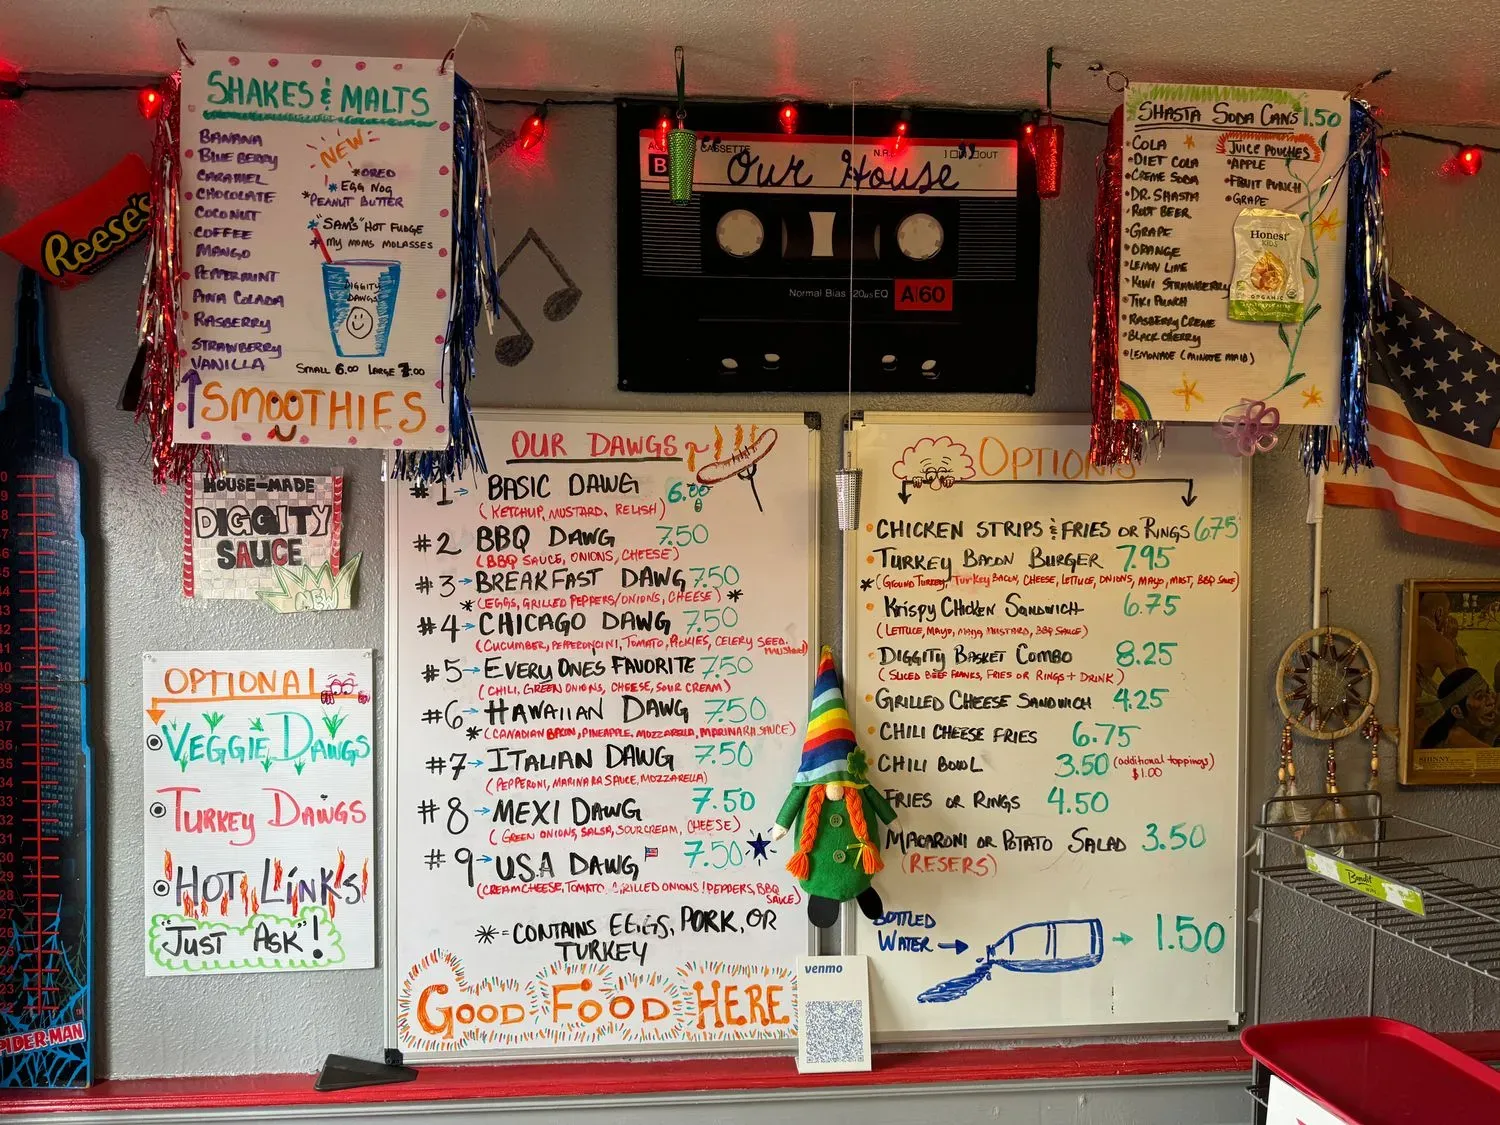 SHAKES & MALTS
BANANA
BLUEBERRY
CARAMEL
CHOCOLATE
COCONUT
COFFEE
MANGO
PEPPERMINT
PINA COLADA
RASBERRY
STRAWBERRY
VANILLA
NEW
*OREO
*EGG NOG
*PEANUT BUTTER
*"SAM'S" HOT FUDGE
*MY MOMS MOLASSES
DIGGITY
DAWGS
SMALL 6.00 LARGE 7.00
SMOOTHIES
REESE'S
HOUSE-MADE
DIGGITY
SAUCE
NEW
OPTIONAL
VEGGIE DAWGS
TURKEY DAWGS
HOT LINKS
"JUST ASK"!
SPIDER-MAN
CASSETTE
B
N.R.
IN OUT
"Our House"
Normal Bias 120µs EQ A|60
OUR DAWGS
#1→ BASIC DAWG 6.00
(KETCHUP, MUSTARD, RELISH)
#2 BBQ DAWG 7.50
(BBQ SAUCE, ONIONS, CHEESE)
#3→BREAKFAST DAWG 7.50
*(EGGS, GRILLED PEPPERS/ONIONS, CHEESE)*
#4→CHICAGO DAWG 7.50
(CUCUMBER, PEPPERONCINI, TOMATO, PICKLES, CELERY SEED, MUSTARD)
#5→EVERYONES FAVORITE 7.50
(CHILI, GREEN ONIONS, CHEESE, SOUR CREAM)
#6→HAWAIIAN DAWG 7.50
*(CANADIAN BACON, PINEAPPLE, MOZZARELLA, MARINARA SAUCE)
#7→ITALIAN DAWG 7.50
(PEPPERONI, MARINARA SAUCE, MOZZARELLA)
#8→MEXI DAWG 7.50
(GREEN ONIONS, SALSA, SOUR CREAM, CHEESE)
#9→U.S.A DAWG 7.50
(CREAM CHEESE, TOMATO, GRILLED ONIONS/PEPPERS, BBQ SAUCE)
*=CONTAINS EGGS, PORK, OR
TURKEY
GOOD FOOD HERE
venmo
OPTIONS
CHICKEN STRIPS & FRIES OR RINGS 6.75
TURKEY BACON BURGER 7.95
*(GROUND TURKEY, TURKEY BACON, CHEESE, LETTUCE, ONIONS, MAYO, MUST, BBQ SAUCE)
KRISPY CHICKEN SANDWICH 6.75
(LETTUCE, MAYO, MUSTARD, BBQ SAUCE)
DIGGITY BASKET COMBO 8.25
(SLICED BEEF FRANKS, FRIES OR RINGS + DRINK)
GRILLED CHEESE SANDWICH 4.25
CHILI CHEESE FRIES 6.75
CHILI BOWL 3.50 (additional toppings)
$1.00
FRIES OR RINGS 4.50
MACARONI OR POTATO SALAD 3.50
(RESERS)
BOTTLED
WATER → → 1.50
SHASTA SODA CANS 1.50
COLA
DIET COLA
CREME SODA
DR. SHASTA
ROOT BEER
GRAPE
ORANGE
LEMON LIME
KIWI STRAWBERRY
TIKI PUNCH
RASBERRY CREME
BLACK CHERRY
LEMONADE (MINUTE MAID)
JUICE POUCHES
APPLE
FRUIT PUNCH
GRAPE
Honest
KIDS
ORGANIC